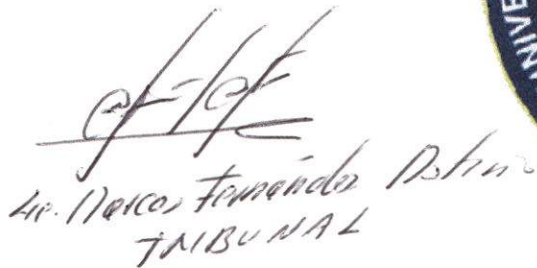 UNIVE
Lic. Marcos Fernández
TRIBUNAL